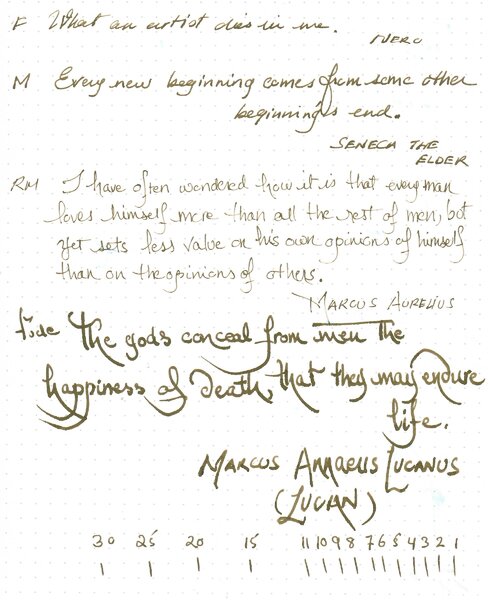 F What an artist dies in me.
NERO
M Every new beginning comes from some other
beginning's end.
SENECA THE
ELDER
RM I have often wondered how it is that every man
loves himself more than all the rest of men, but
yet sets less value on his own opinions of himself
than on the opinions of others.
MARCUS AURELIUS
The gods conceal from men the
happiness of death, that they may endure
life.
MARCUS ANNAEUS LUCANUS
(LUCAN)
30 25 20 15 11 10 9 8 7 6 5 4 3 2 1